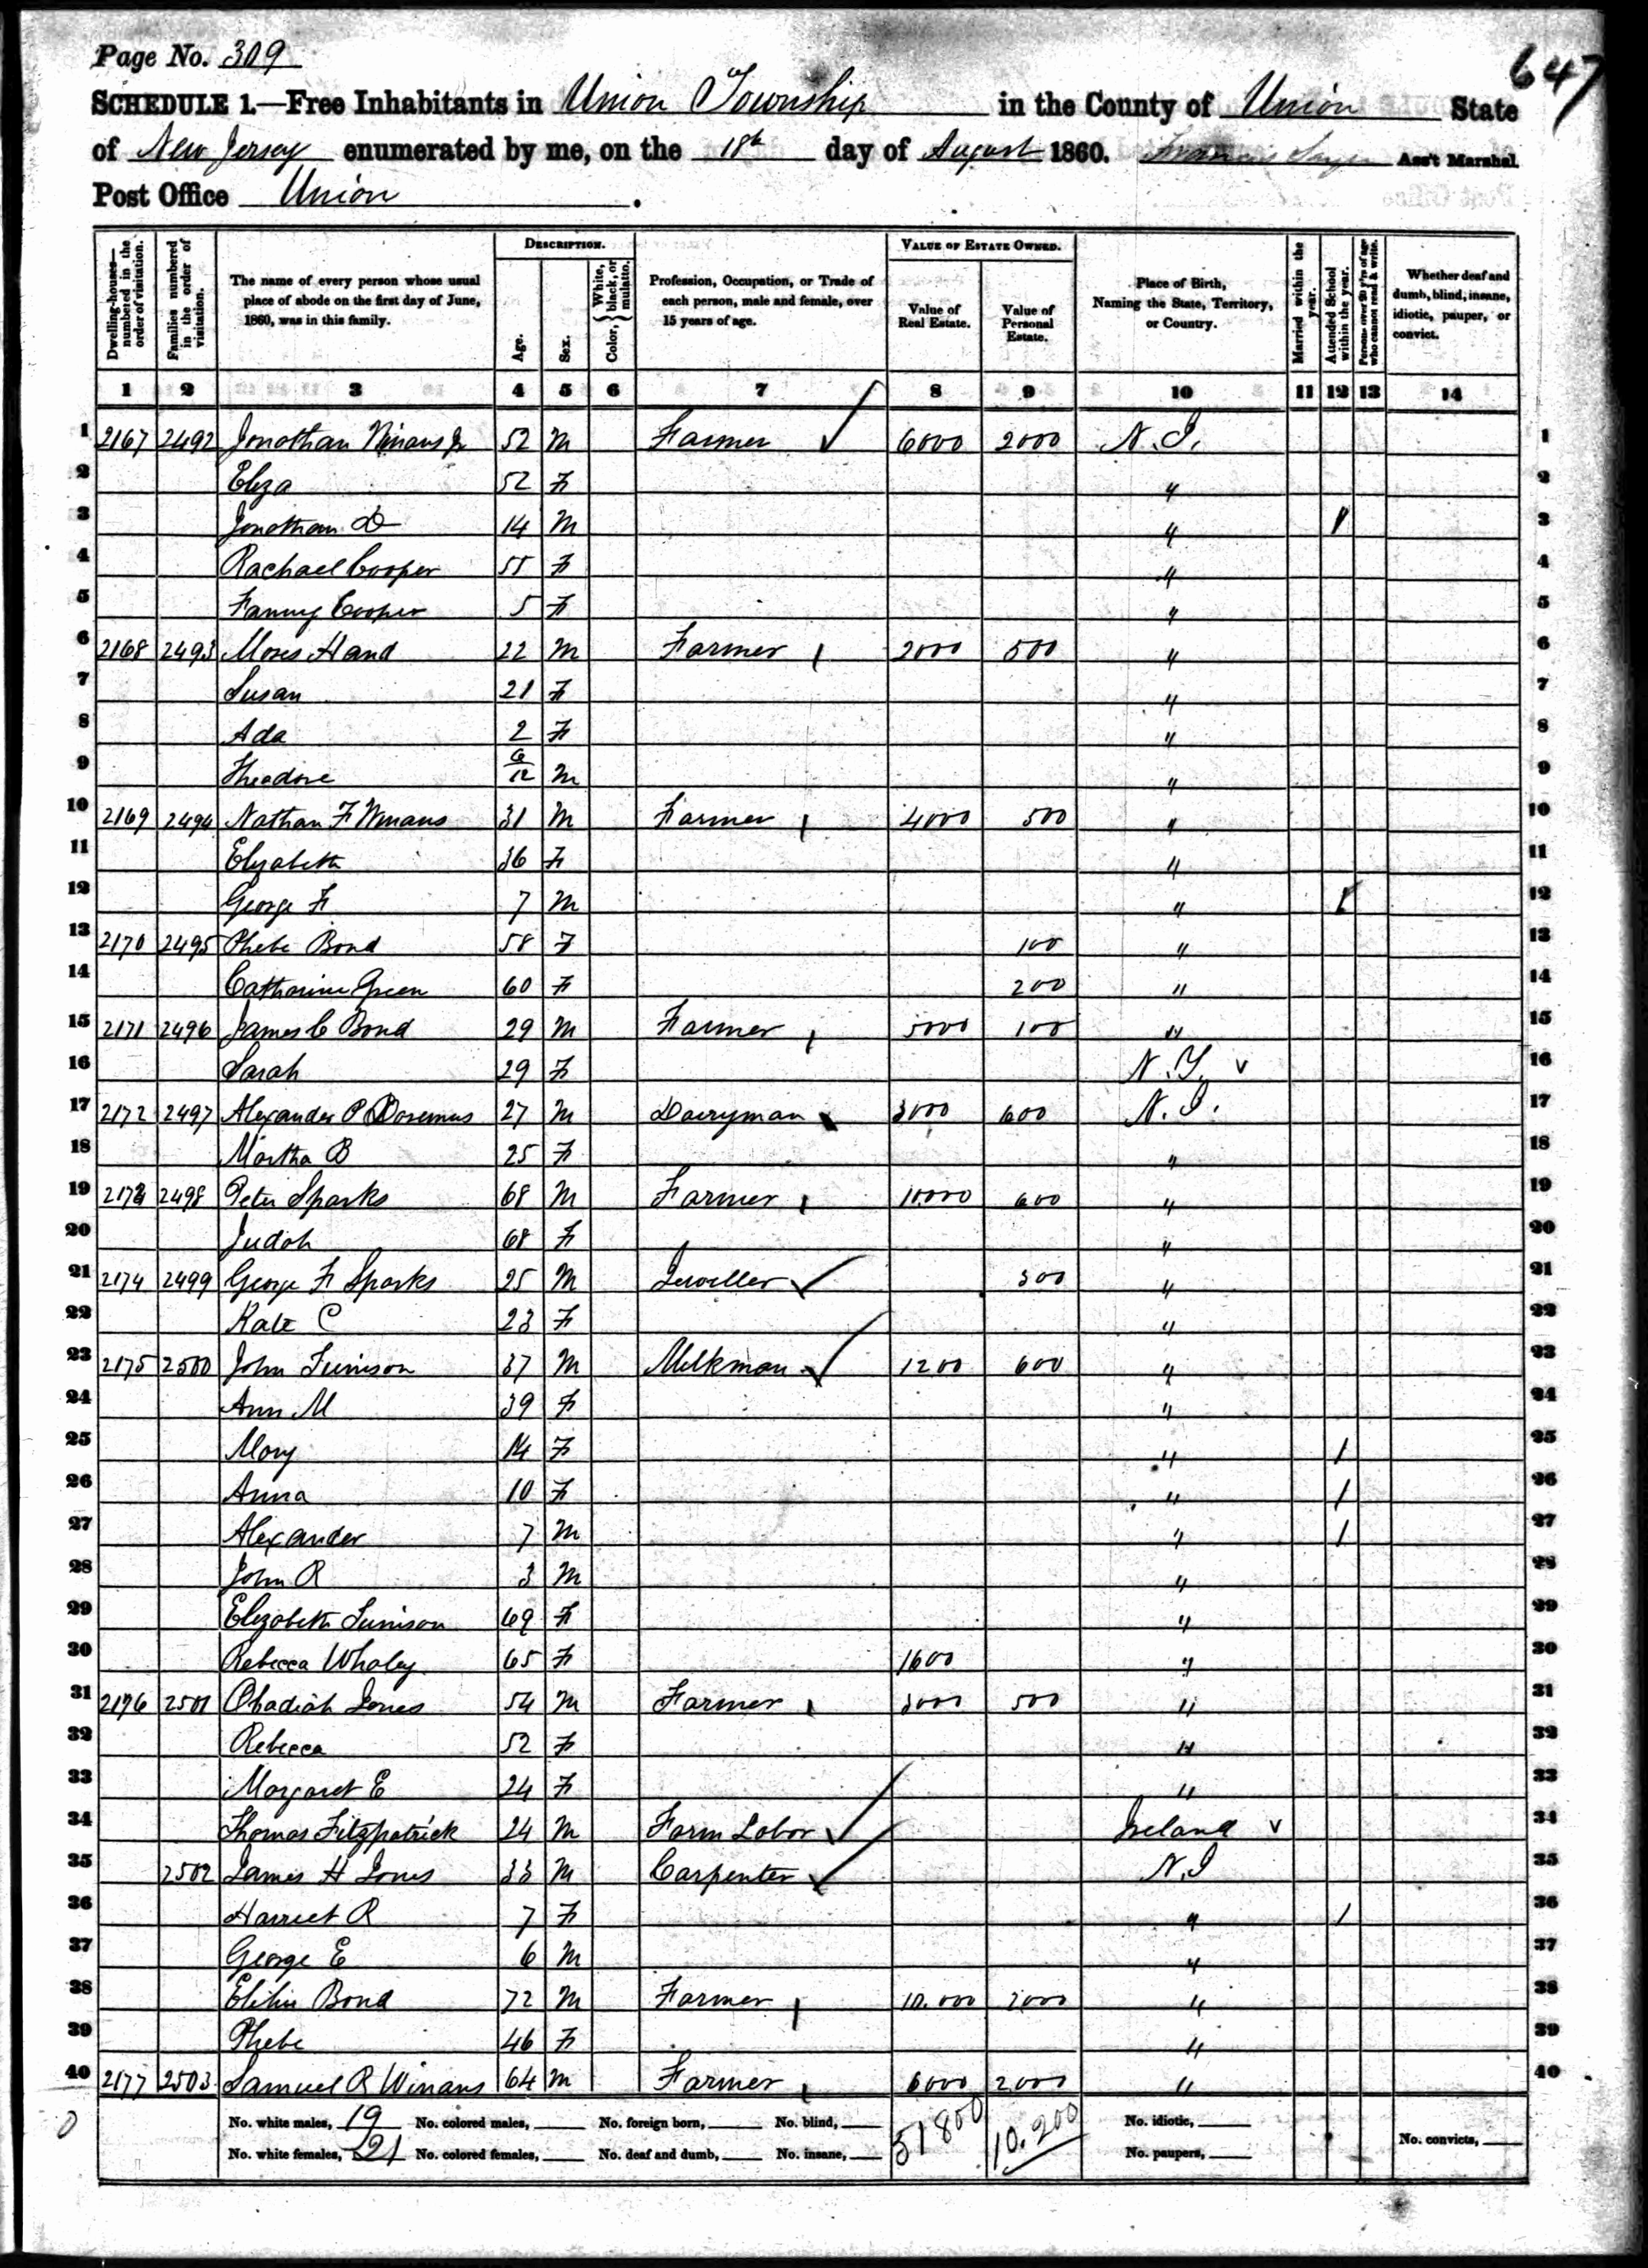 Page No. 309
647
SCHEDULE 1.—Free Inhabitants in Union Township in the County of Union State
of New Jersey enumerated by me, on the 18th day of August 1860. Ass't Marshal.
Post Office Union.
Dwelling-houses—numbered in the order of visitation.
Families numbered in the order of visitation.
The name of every person whose usual place of abode on the first day of June, 1860, was in this family.
DESCRIPTION.
Age.
Sex.
Color, { White, black, or mulatto.
Profession, Occupation, or Trade of each person, male and female, over 15 years of age.
VALUE OF ESTATE OWNED.
Value of Real Estate.
Value of Personal Estate.
Place of Birth, Naming the State, Territory, or Country.
Married within the year.
Attended School within the year.
Persons over 20 y'rs of age who cannot read & write.
Whether deaf and dumb, blind, insane, idiotic, pauper, or convict.
1 2 3 4 5 6 7 8 9 10 11 12 13 14
1 2167 2492 Jonathan Winans Jr 52 M Farmer 6000 2000 N.J. 1
2 Eliza 52 F " 2
3 Jonathan D 14 M " / 3
4 Rachael Cooper 55 F " 4
5 Fanny Cooper 5 F " 5
6 2168 2493 Moses Hand 22 M Farmer 2000 500 " 6
7 Susan 21 F " 7
8 Ada 2 F " 8
9 Theodore 6/12 M " 9
10 2169 2494 Nathan F Winans 31 M Farmer 4000 500 " 10
11 Elizabeth 36 F " 11
12 George F 7 M " / 12
13 2170 2495 Phebe Bond 58 F 100 " 13
14 Catharine Green 60 F 200 " 14
15 2171 2496 James C Bond 29 M Farmer 5000 100 " 15
16 Sarah 29 F N.Y. v 16
17 2172 2497 Alexander P Doremus 27 M Dairyman 3000 600 N.J. 17
18 Martha B 25 F " 18
19 2173 2498 Peter Sparks 68 M Farmer 10000 600 " 19
20 Judah 68 F " 20
21 2174 2499 George F Sparks 25 M Jeweller 300 " 21
22 Kate C 23 F " 22
23 2175 2500 John Tunison 37 M Milkman 1200 600 " 23
24 Ann M 39 F " 24
25 Mary 14 F " / 25
26 Anna 10 F " / 26
27 Alexander 7 M " / 27
28 John R 3 M " 28
29 Elizabeth Tunison 69 F " 29
30 Rebecca Whaley 65 F 1600 " 30
31 2176 2501 Obadiah Jones 54 M Farmer 3000 500 " 31
32 Rebecca 52 F " 32
33 Margaret E 24 F " 33
34 Thomas Fitzpatrick 24 M Farm Labor Ireland v 34
35 2502 James H Jones 33 M Carpenter N.J 35
36 Harriet R 7 F " / 36
37 George E 6 M " 37
38 Elihu Bond 72 M Farmer 10.000 2000 " 38
39 Phebe 46 F " 39
40 2177 2503 Samuel R Winans 64 M Farmer 6000 2000 " 40
No. white males, 19 No. colored males, No. foreign born, No. blind, 51800 10.200 No. idiotic,
No. white females, 21 No. colored females, No. deaf and dumb, No. insane, No. paupers, No. convicts,